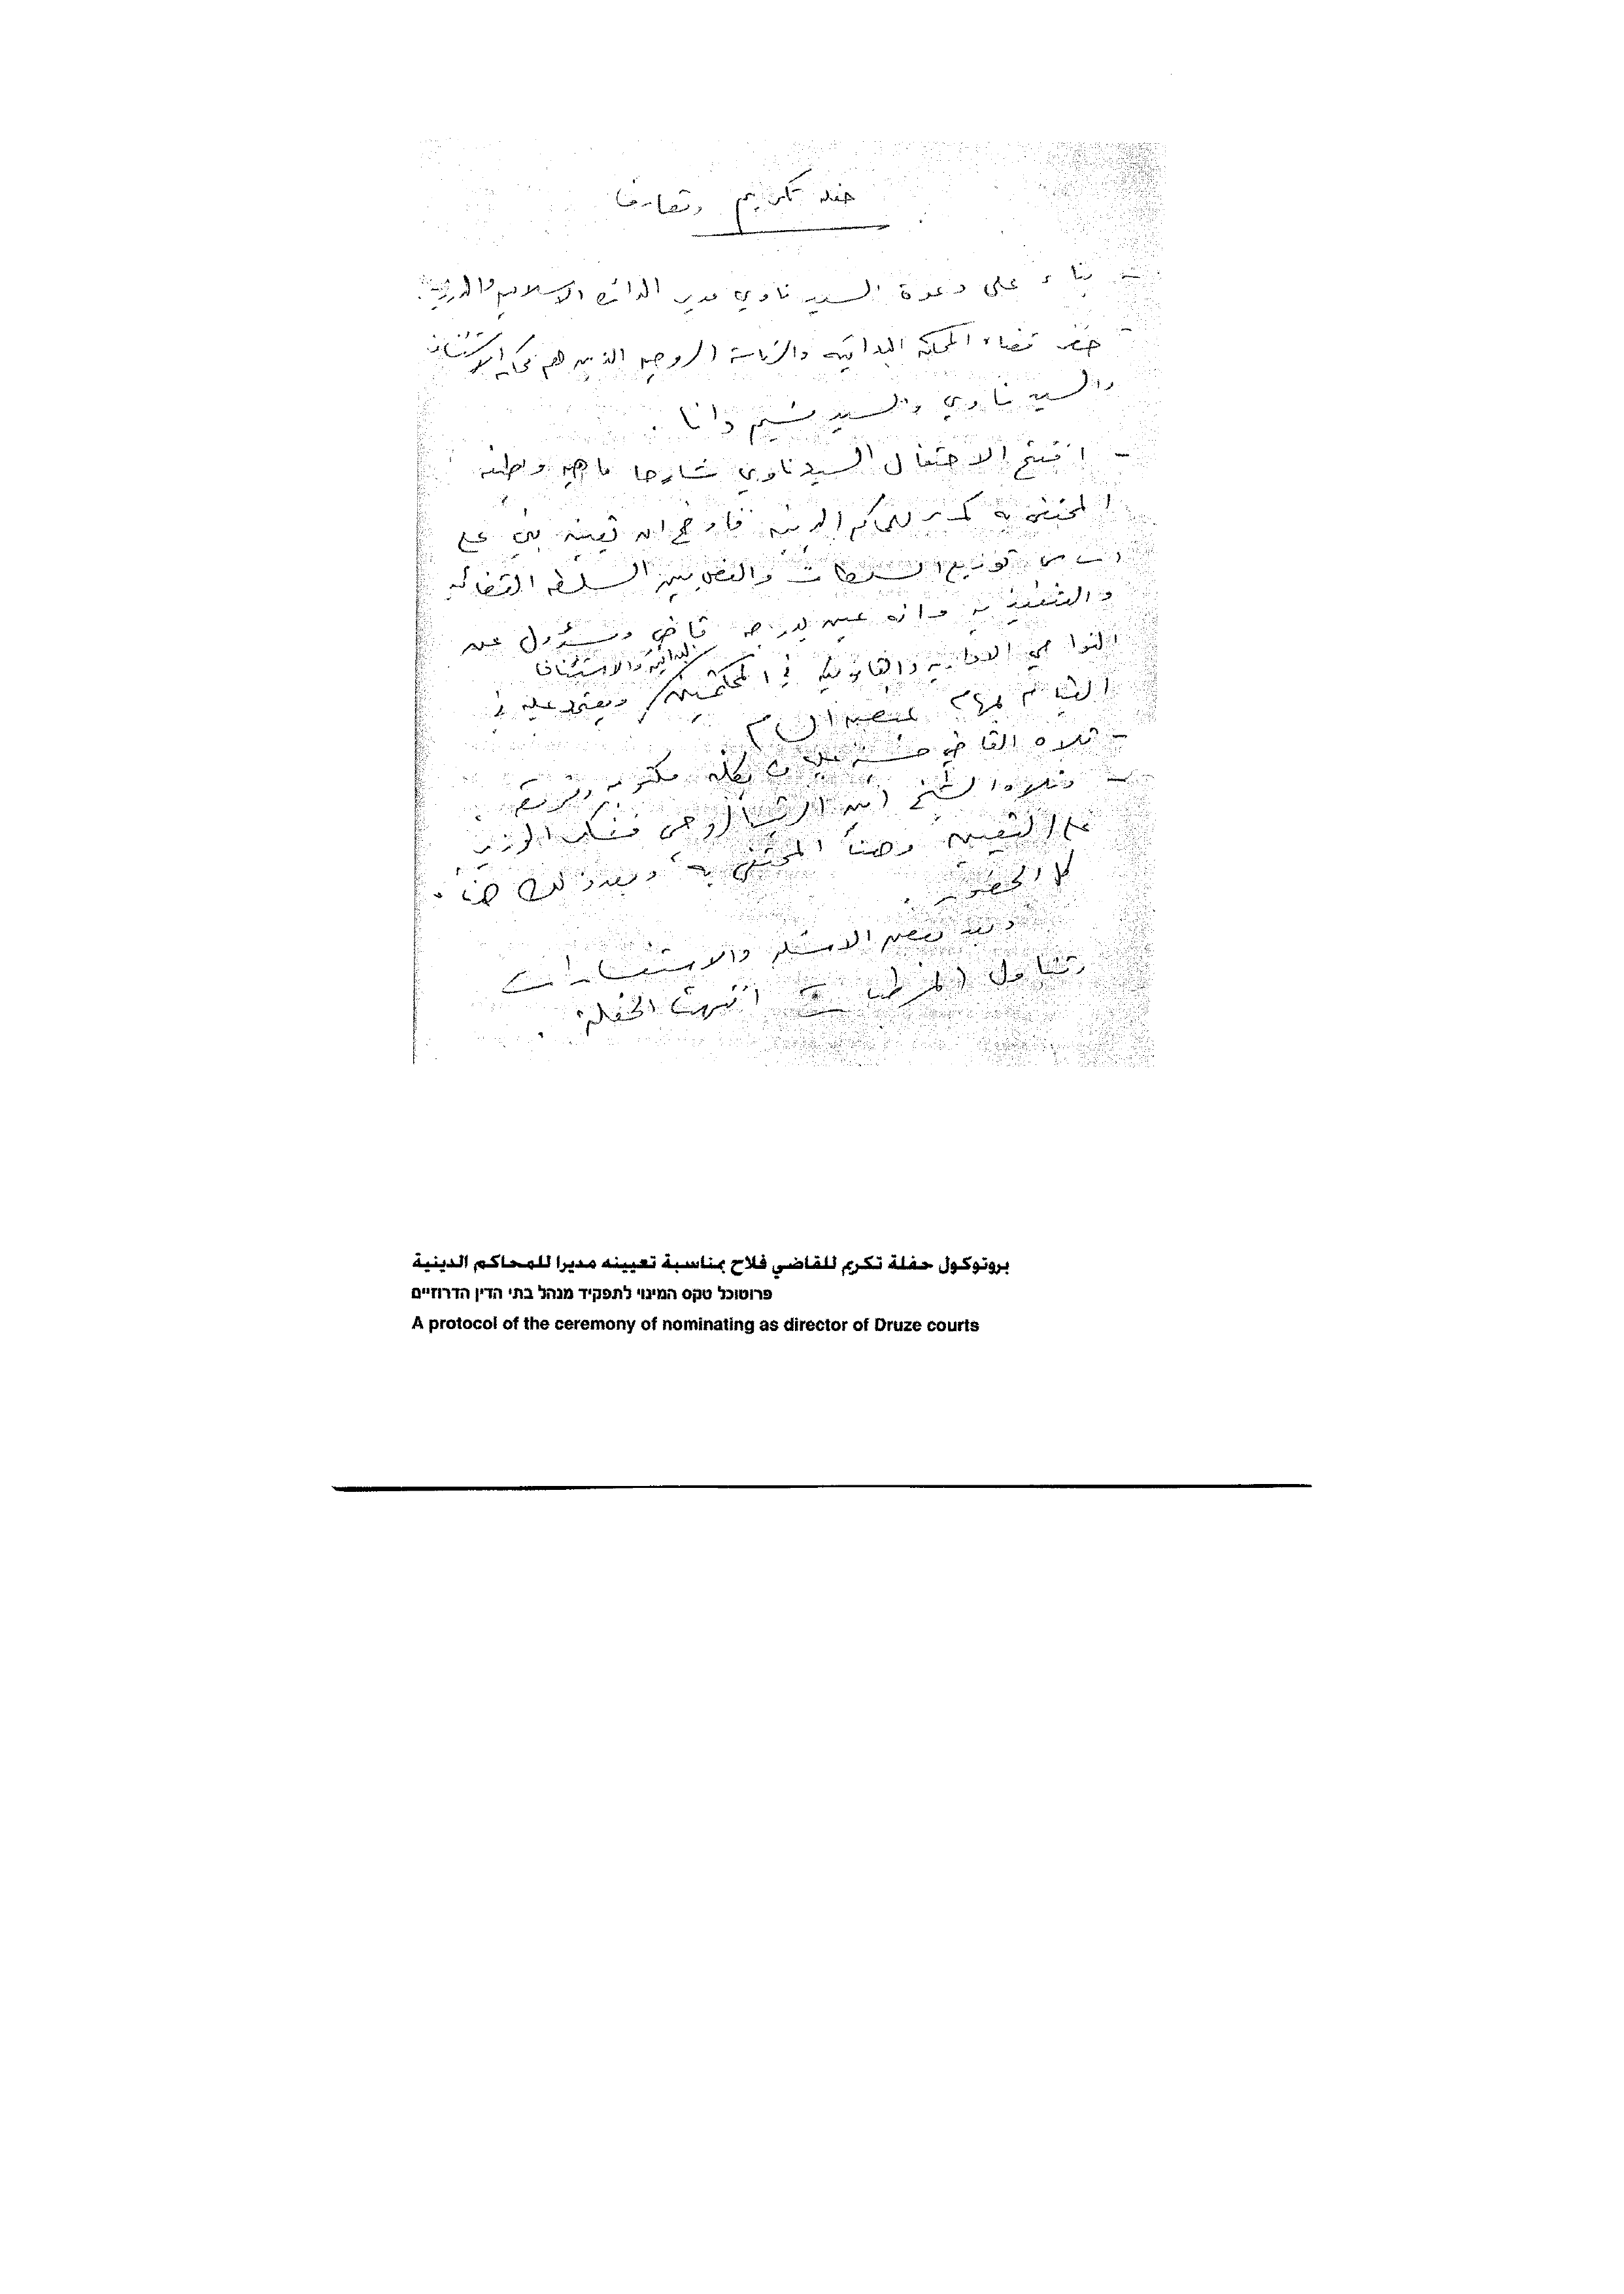 حفلة تكريم وتعارف
- بناء على دعوة السيد ناوي مدير الدائرة الاسلامية والدرزية
- حضر قضاة المحكمة البدائية والرئاسة الروحية الذين هم محكمة الاستئناف
والسيد ناوي والسيد نسيم دانا .
- افتتح الاحتفال السيد ناوي شارحا ماهية وظيفة
المحتفى به كمدير للمحاكم الدينية فاوضح ان تعيينه بني على
اساس توزيع السلطات والفصل بين السلطة القضائية
والتنفيذية وانه عين بدرجة قاضي ومسؤول عن
النواحي الادارية والقانونية في المحكمتين البدائية والاستئناف ويعتمد عليه في
القيام بمهام منصبه
- تلاه القاضي بكلمة مكتوبة
- وتلاه الشيخ امين فشكر الوزير
على التعيين وهنأ المحتفى به وبعد ذلك هنأه
كل الحضور .
وبعد بعض الاسئلة والاستفسارات
وتناول المرطبات انتهت الحفلة .
بروتوكول حفلة تكريم للقاضي فلاح بمناسبة تعيينه مديرا للمحاكم الدينية
פרוטוכל טקס המינוי לתפקיד מנהל בתי הדין הדרוזיים
A protocol of the ceremony of nominating as director of Druze courts